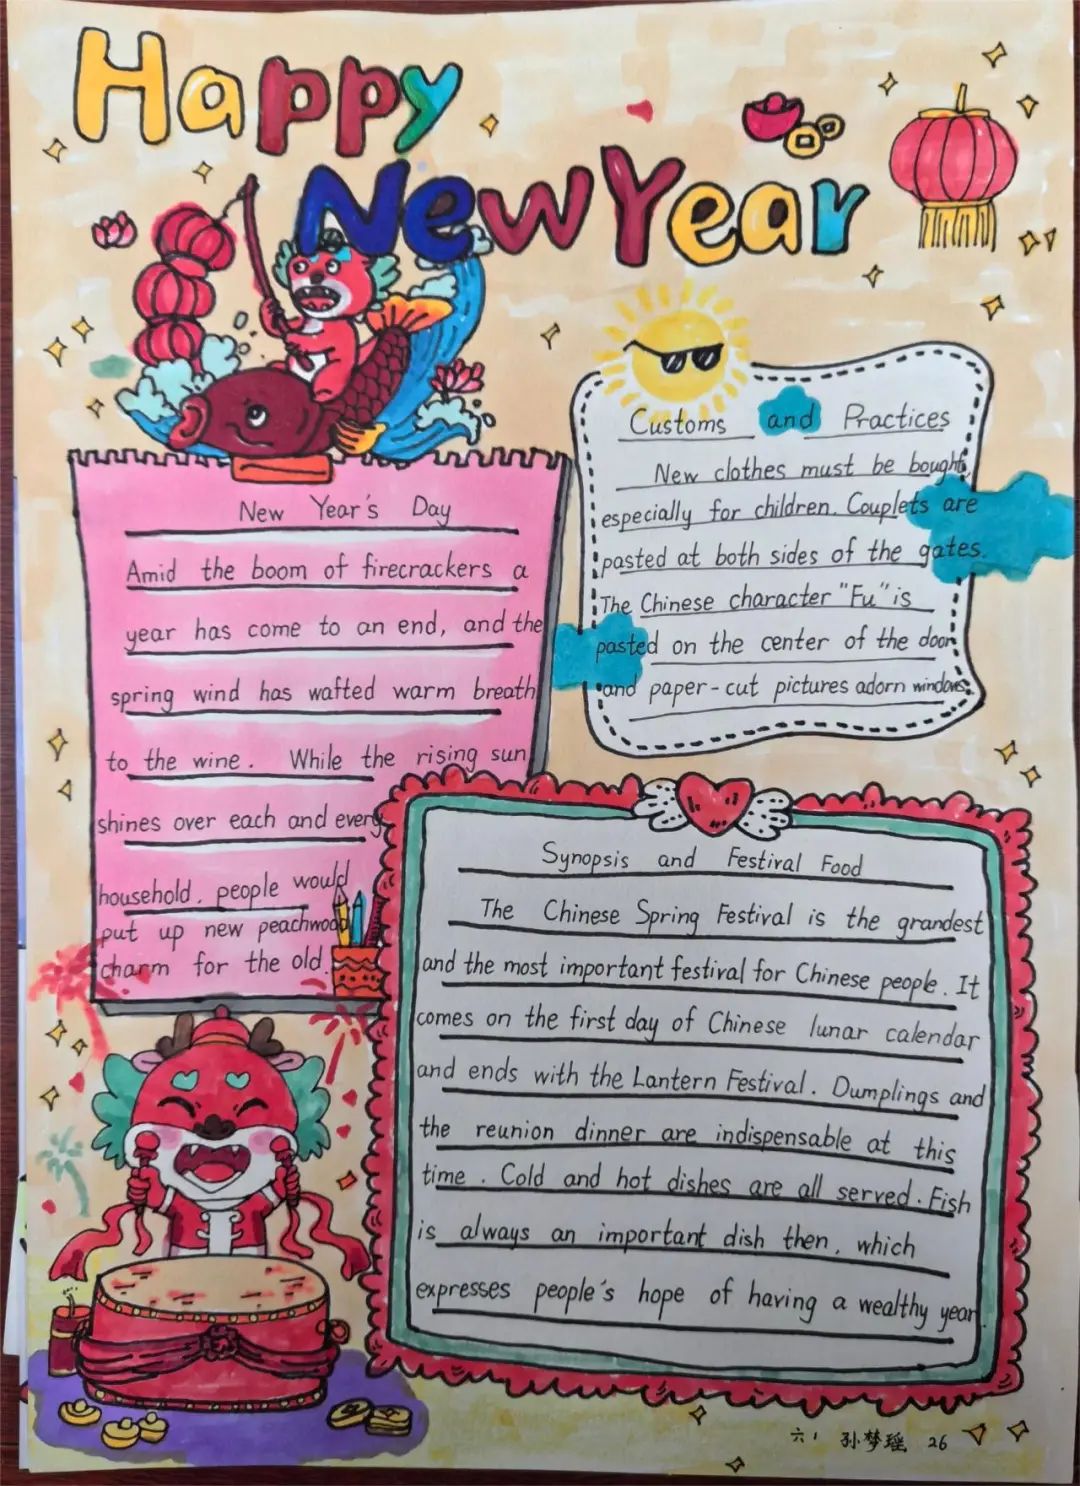 Happy
New Year
New Year's Day
Amid the boom of firecrackers a
year has come to an end, and the
spring wind has wafted warm breath
to the wine. While the rising sun
shines over each and every
household, people would
put up new peachwood
charm for the old.
Customs and Practices
New clothes must be bought,
especially for children. Couplets are
pasted at both sides of the gates.
The Chinese character "Fu" is
pasted on the center of the door
and paper-cut pictures adorn windows.
Synopsis and Festival Food
The Chinese Spring Festival is the grandest
and the most important festival for Chinese people. It
comes on the first day of Chinese lunar calendar
and ends with the Lantern Festival. Dumplings and
the reunion dinner are indispensable at this
time. Cold and hot dishes are all served. Fish
is always an important dish then, which
expresses people's hope of having a wealthy year.
六1 孙梦瑶 26